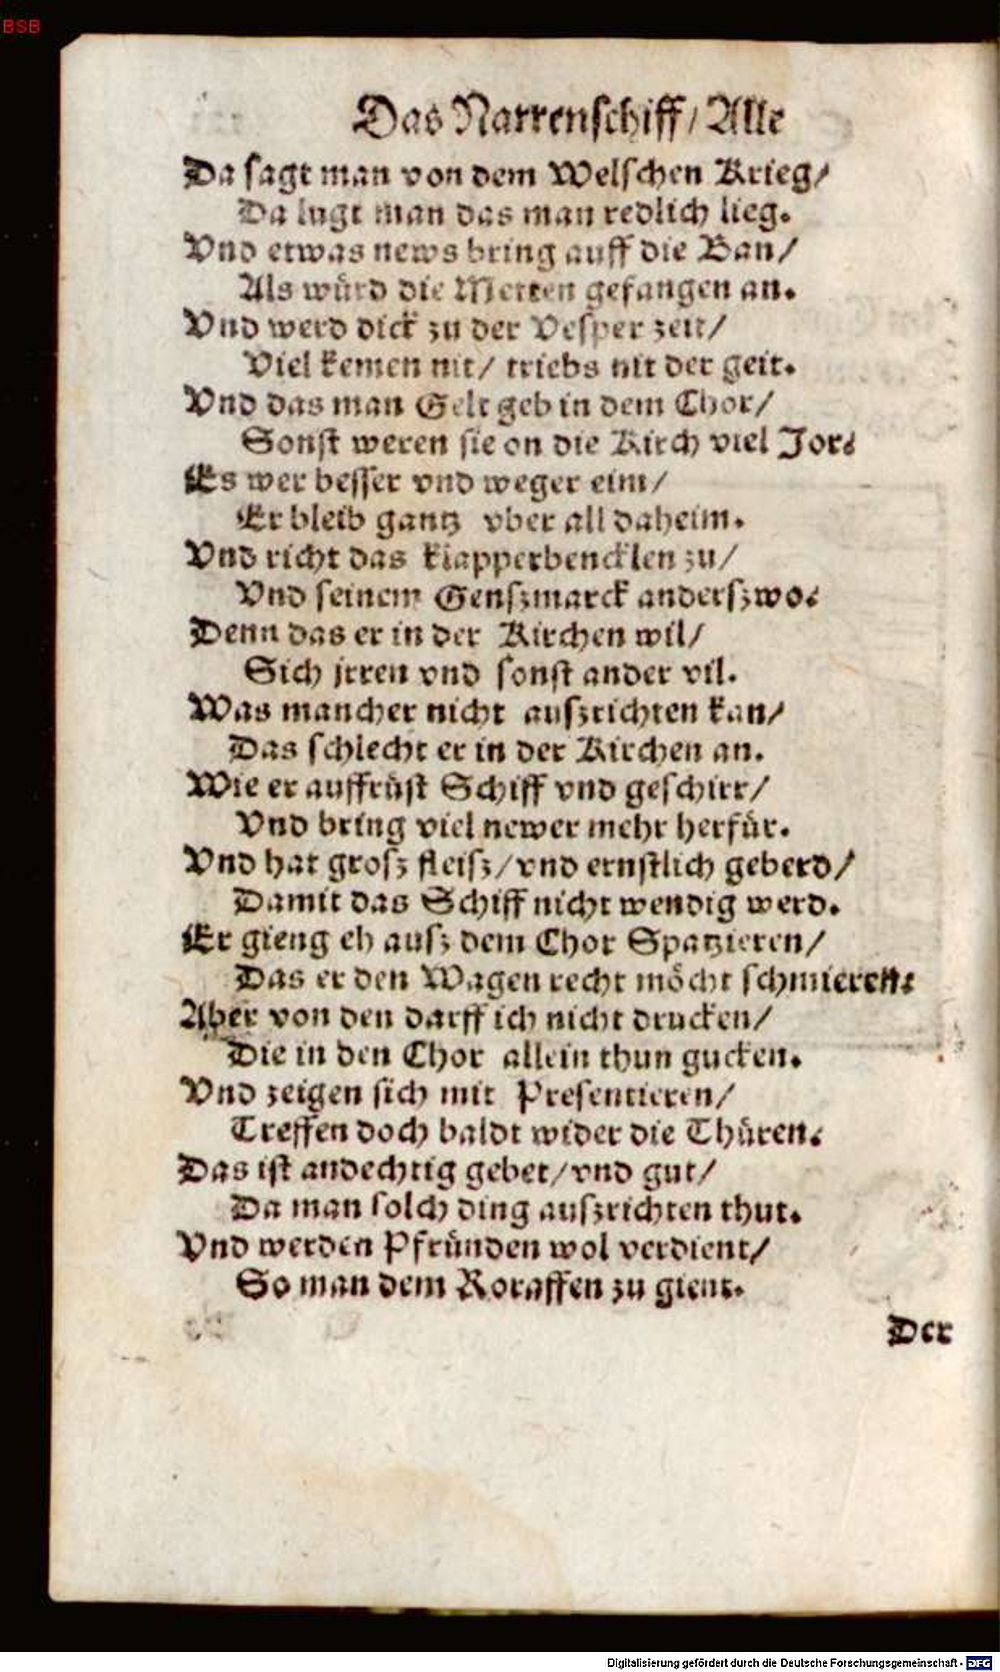 BSB
Das Narrenschiff/ Alle
Da sagt man von dem Welschen Krieg/
Da lugt man das man redlich lieg.
Vnd etwas news bring auff die Ban/
Als würd die Metten gefangen an.
Vnd werd dick zu der Vesper zeit/
Viel kemen nit/ triebs nit der geit.
Vnd das man Gelt geb in dem Chor/
Sonst weren sie on die Kirch viel Jor.
Es wer besser vnd weger eim/
Er bleib gantz vber all daheim.
Vnd richt das klapperbencklen zu/
Vnd seinem Genszmarck anderszwo.
Denn das er in der Kirchen wil/
Sich jrren vnd sonst ander vil.
Was mancher nicht auszrichten kan/
Das schlecht er in der Kirchen an.
Wie er auffrüst Schiff vnd geschirr/
Vnd bring viel newer mehr herfür.
Vnd hat grosz fleisz/ vnd ernstlich geberd/
Damit das Schiff nicht wendig werd.
Er gieng eh ausz dem Chor Spatzieren/
Das er den Wagen recht möcht schmieren.
Aber von den darff ich nicht drucken/
Die in den Chor allein thun gucken.
Vnd zeigen sich mit Presentieren/
Treffen doch baldt wider die Thüren.
Das ist andechtig gebet/ vnd gut/
Da man solch ding auszrichten thut.
Vnd werden Pfründen wol verdient/
So man dem Roraffen zu gient.
Der
Digitalisierung gefördert durch die Deutsche Forschungsgemeinschaft - DFG